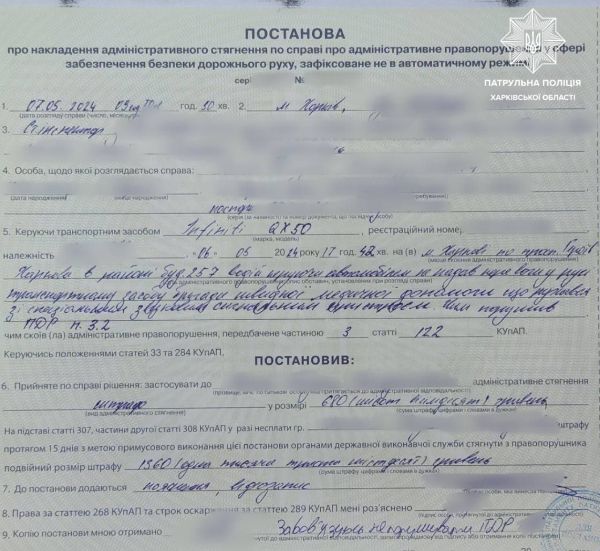 ПОСТАНОВА
про накладення адміністративного стягнення по справі про адміністративне правопорушення у сфері
забезпечення безпеки дорожнього руху, зафіксоване не в автоматичному режимі
ПАТРУЛЬНА ПОЛІЦІЯ
ХАРКІВСЬКОЇ ОБЛАСТІ
сері №
1. 07.05.2024 год. 30 хв. 2. м Харків,
(дата розгляду справи (число, місяць
3. Ст інспектор
4. Особа, щодо якої розглядається справа:
(дата народження)
паспорт
(серія (за наявності) та номер документа, що посвідчує особу)
5. Керуючи транспортним засобом Infiniti QX50, реєстраційний номер
(марка, модель)
належність 06 05 2024 року 17 год. 42 хв. на (в) м Харков по просп. Героїв
Харкова в районі буд 257 водій керуючи автомобілем не надав перевагу в русі
транспортному засобу бригади швидкої медичної допомоги що рухався
зі спеціальним звуковим сигнальним пристроєм. Чим порушив
ПДР п. 3.2
чим скоїв (ла) адміністративне правопорушення, передбачене частиною 3 статті 122 КУпАП.
Керуючись положеннями статей 33 та 284 КУпАП,
ПОСТАНОВИВ:
6. Прийняте по справі рішення: застосувати до адміністративне стягнення
штраф у розмірі 680 (шістсот вісімдесят) гривень
(вид адміністративного стягнення) (сума штрафу цифрами і словами в дужках)
На підставі статті 307, частини другої статті 308 КУпАП у разі несплати гр.
протягом 15 днів з метою примусового виконання цієї постанови органами державної виконавчої служби стягнути з правопорушника
подвійний розмір штрафу 1360 (одна тисяча триста шістдесят) гривень
(сума штрафу цифрами і словами в дужках)
7. До постанови додаються пояснення, відеозапис
8. Права за статтею 268 КУпАП та строк оскарження за статтею 289 КУпАП мені роз'яснено
9. Копію постанови мною отримано Зобов'язуюсь не порушувати ПДР